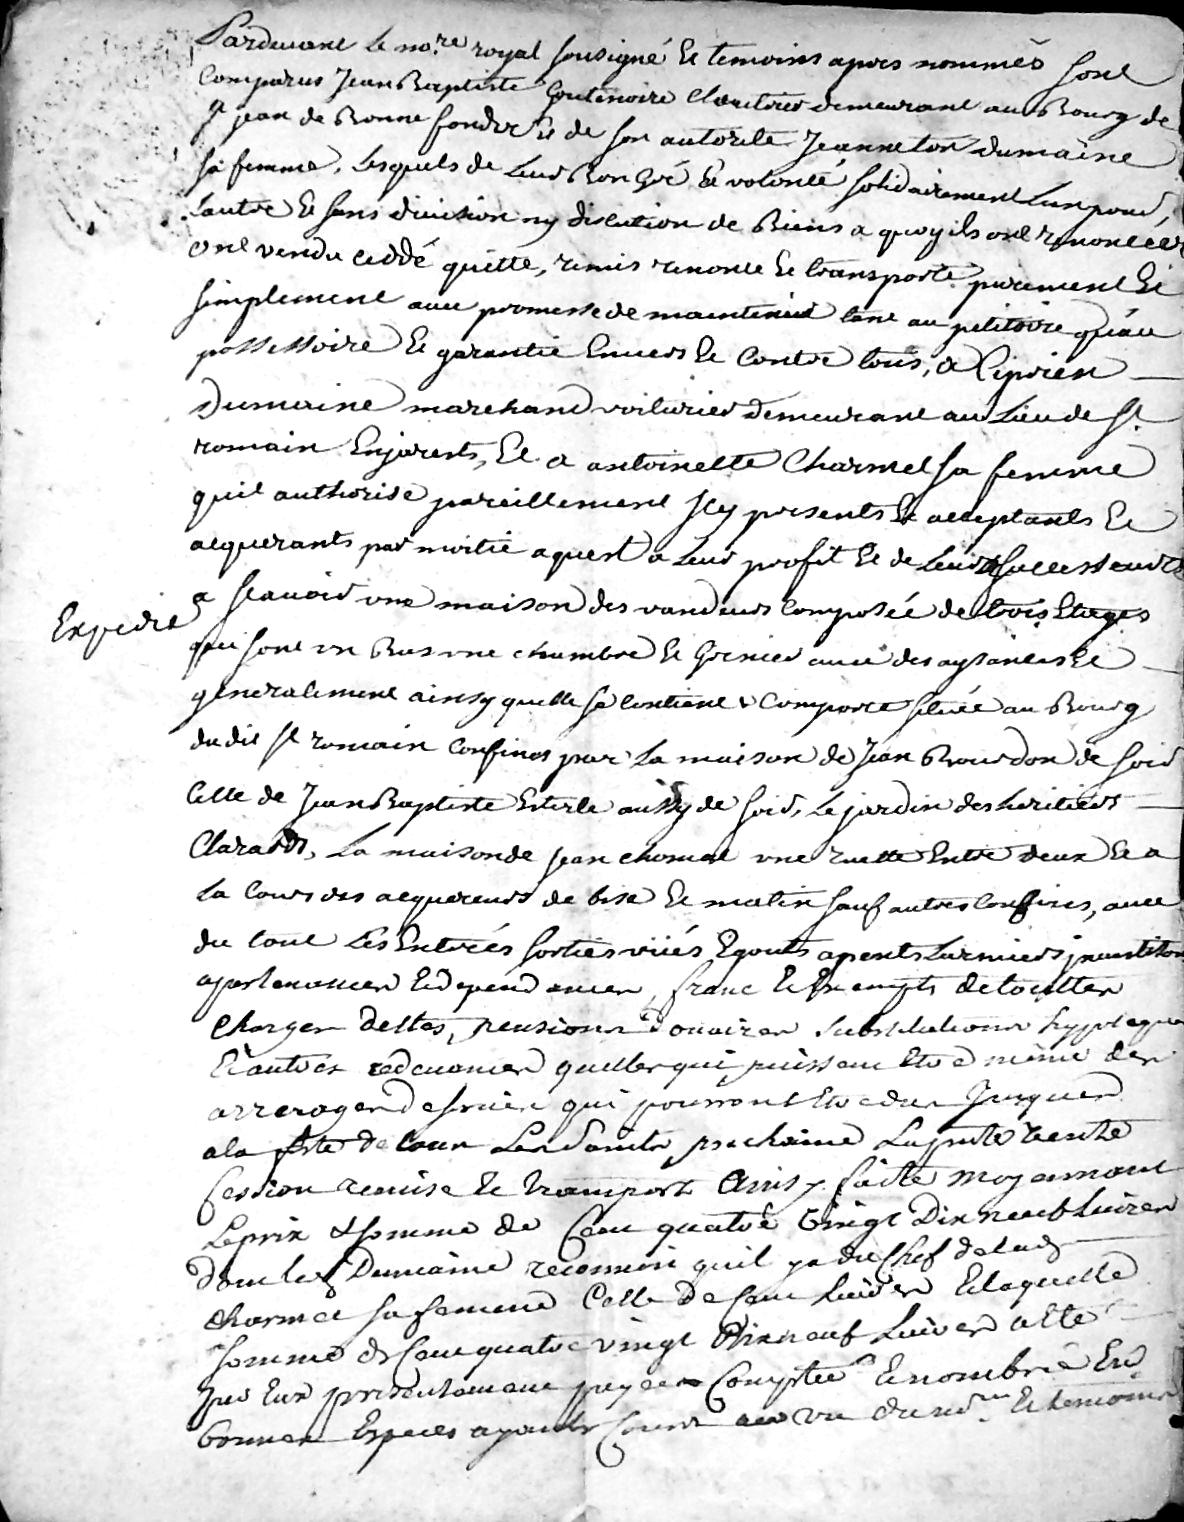 Pardevant le no.re royal sousigné Et temoins apres nommés sont
Comparus Jean Baptiste Goutenoire Cloutier demeurant au Bourg de
St jean de Bonne fond et de son autorité Jeanneton dumaine
sa femme, Lesquels de Leur Bon gré Et volonté solidairement Lun pour
Lautre Et sans division ny discution de Biens a quoy ils ont renoncéés
ont vendu ceddé quitté, remis renoncé Et transporté purement Et
simplement avec promesse de maintenir tant au petitoire quau
possessoire Et garantie Envers Et Contre tous, a Ciprien
Dumaine marchand voiturier demeurant au Lieu de St
romain Enjarests, Et a antoinette Charmet sa femme
quil authorise pareillement Icy presents Et acceptants Et
acquerants par moitié aquest a Leur profit Et de Leurs successeurs
Expedié
a scavoir une maison des vandeurs Composée de trois Etages
qui sont un Bas une chambre Et Grenier avec des aysances Et
generalement ainsy quelle se Contient & Comporte scituée au Bourg
dudit St romain Confinés par La maison de Jean Bourdon de soir
Celle de Jean Baptiste Esterle aussy de soir, Le jardin des heritiers
Clarard, La maison de jean chomat une ruette Entre deux Et a
La Cour des acquereurs de bise Et matin sauf autres Confins, avec
du tout Les Entréés sorties vüés Egouts apents Larmiers
apartenances Et dependances, franc Et Exempts de toutes
charges dettes, pensions Douaires substitutions hypteques
Et autres redevances quelles qui puissent Etre même des
arrerages de servis qui pourront Etre dus Jusques
a la fête de tous Les Saints prochaine La pnte vente
Cession remise Et transport Ainsy faite moyennant
Le prix & somme de Cent quatre vingt Dix neuf Livres
Dont led Dumaine reconnoit quil y a du Chef de lad
charmet sa femme Celle de Cent Livres Et laquelle
somme de Cent quatre vingt Dix neuf Livres a Eté
par Eux presentement payée Comptée Et nombrée En
bonnes Especes ayants Cours au vu dud no.re Et temoins